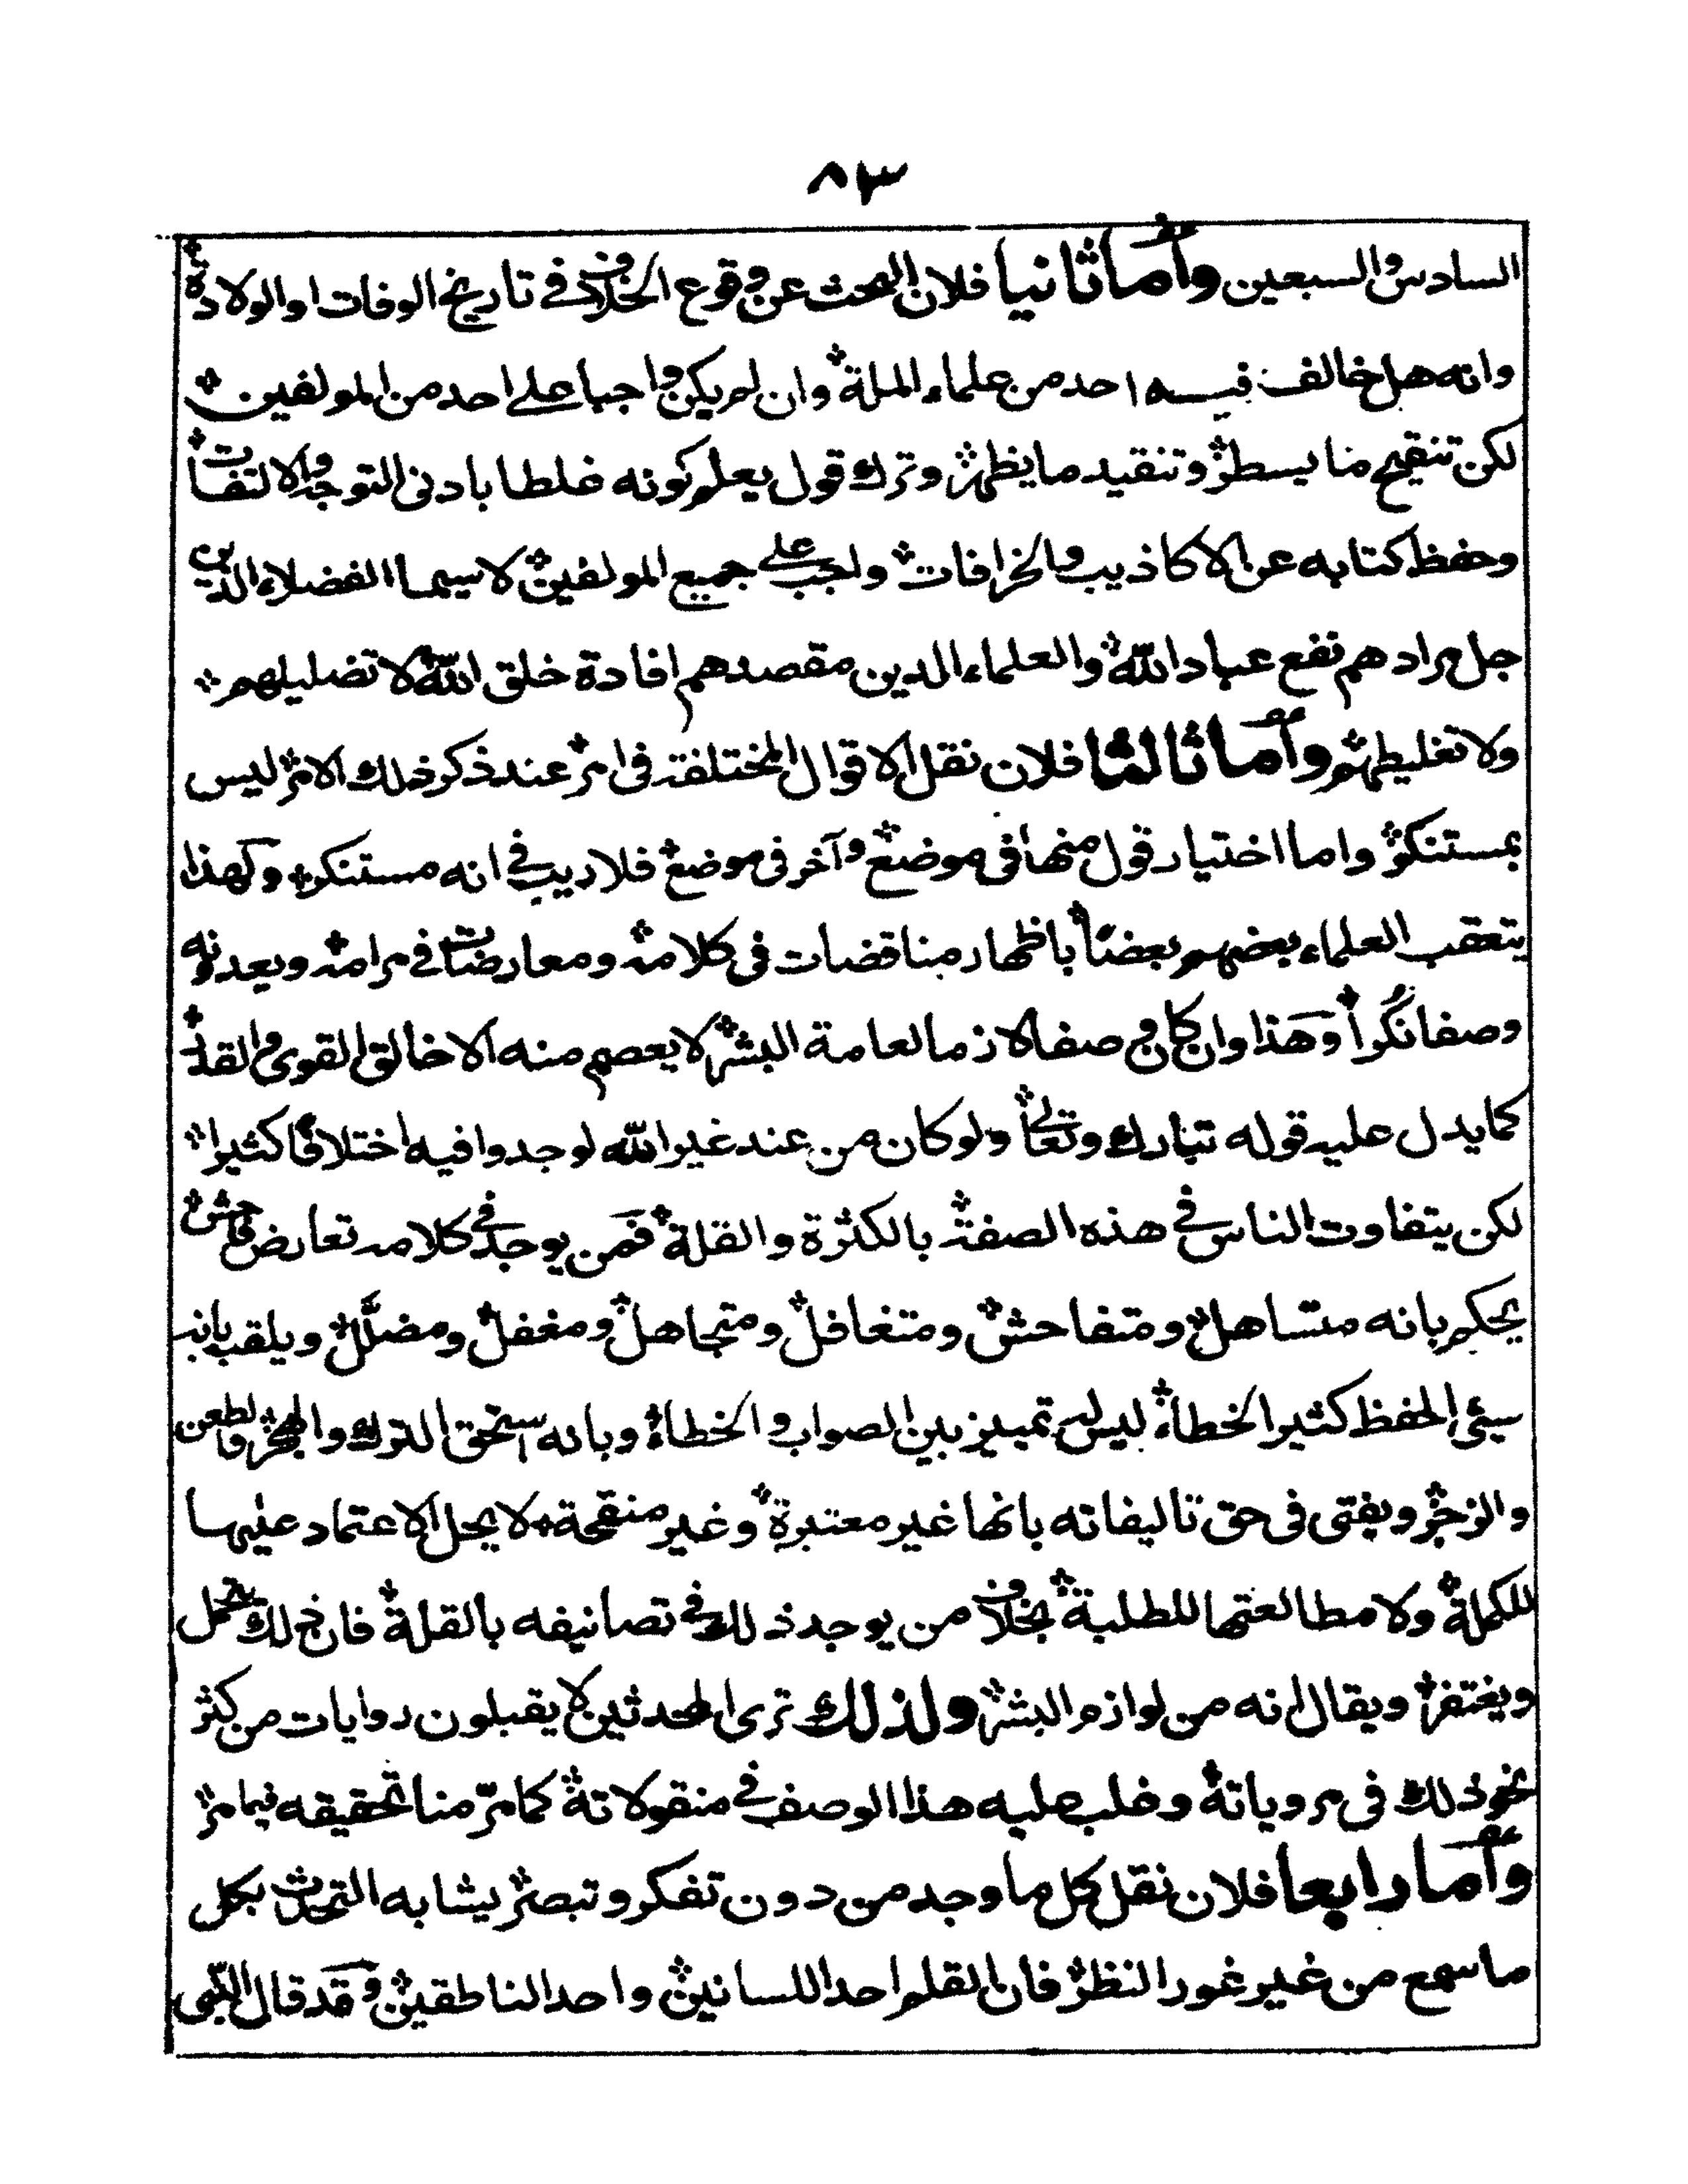 ٨٣
السادس والسبعين وأما ثانيا فلان البحث عن وقوع الخلاف في تاريخ الوفات او الولادة
وانه هل خالف فيه احد من علماء الملة وان لم يكن واجبا على احد من المولفين
لكن تنقيح ما يسطر وتنقيد ما يظهر وترك قول يعلم كونه غلطا بادنى التوجه والالتفات
وحفظ كتابه عن الاكاذيب والخرافات واجب على جميع المولفين لاسيما الفضلاء الذين
جل مرادهم نفع عباد الله والعلماء الذين مقصدهم افادة خلق الله لا تضليلهم
ولا تغليطهم وأما ثالثا فلان نقل الاقوال المختلفة في امر عند ذكر ذلك الامر ليس
بمستنكر واما اختيار قول منها في موضع وآخر في موضع فلا ريب في انه مستنكر وكهذا
يتعقب العلماء بعضهم بعضاً باظهار مناقضات في كلامه ومعارضات في مرامه ويعدونه
وصفا نكراً وهذا وان كان وصفا لازما لعامة البشر لا يعصم منه الا خالق القوى والقدر
كما يدل عليه قوله تبارك وتعالى ولو كان من عند غير الله لوجدوا فيه اختلافا كثيرا
لكن يتفاوت الناس في هذه الصفة بالكثرة والقلة فمن يوجد في كلامه تعارض فاحش
يحكم بانه متساهل ومتفاحش ومتغافل ومتجاهل ومغفل ومضلل ويلقب بانه
سيئ الحفظ كثير الخطاء ليس له تميز بين الصواب والخطاء وبانه استحق الترك والهجر والطعن
والزجر ويفتى في حق تاليفاته بانها غير معتبرة وغير منقحة لا يحل الاعتماد عليها
للكملة ولا مطالعتها للطلبة بخلاف من يوجد ذلك في تصانيفه بالقلة فان ذلك يتحمل
ويغتفر ويقال انه من لوازم البشر ولذلك ترى المحدثين لا يقبلون روايات من كثر
نحو ذلك في مروياته وغلب عليه هذا الوصف في منقولاته كما مر منا تحقيقه فيما مر
وأما رابعا فلان نقل كل ما وجد من دون تفكر وتبصر يشابه التحدث بكل
ما سمع من غير غور النظر فان القلم احد اللسانين واحد الناطقين وقد قال النبي